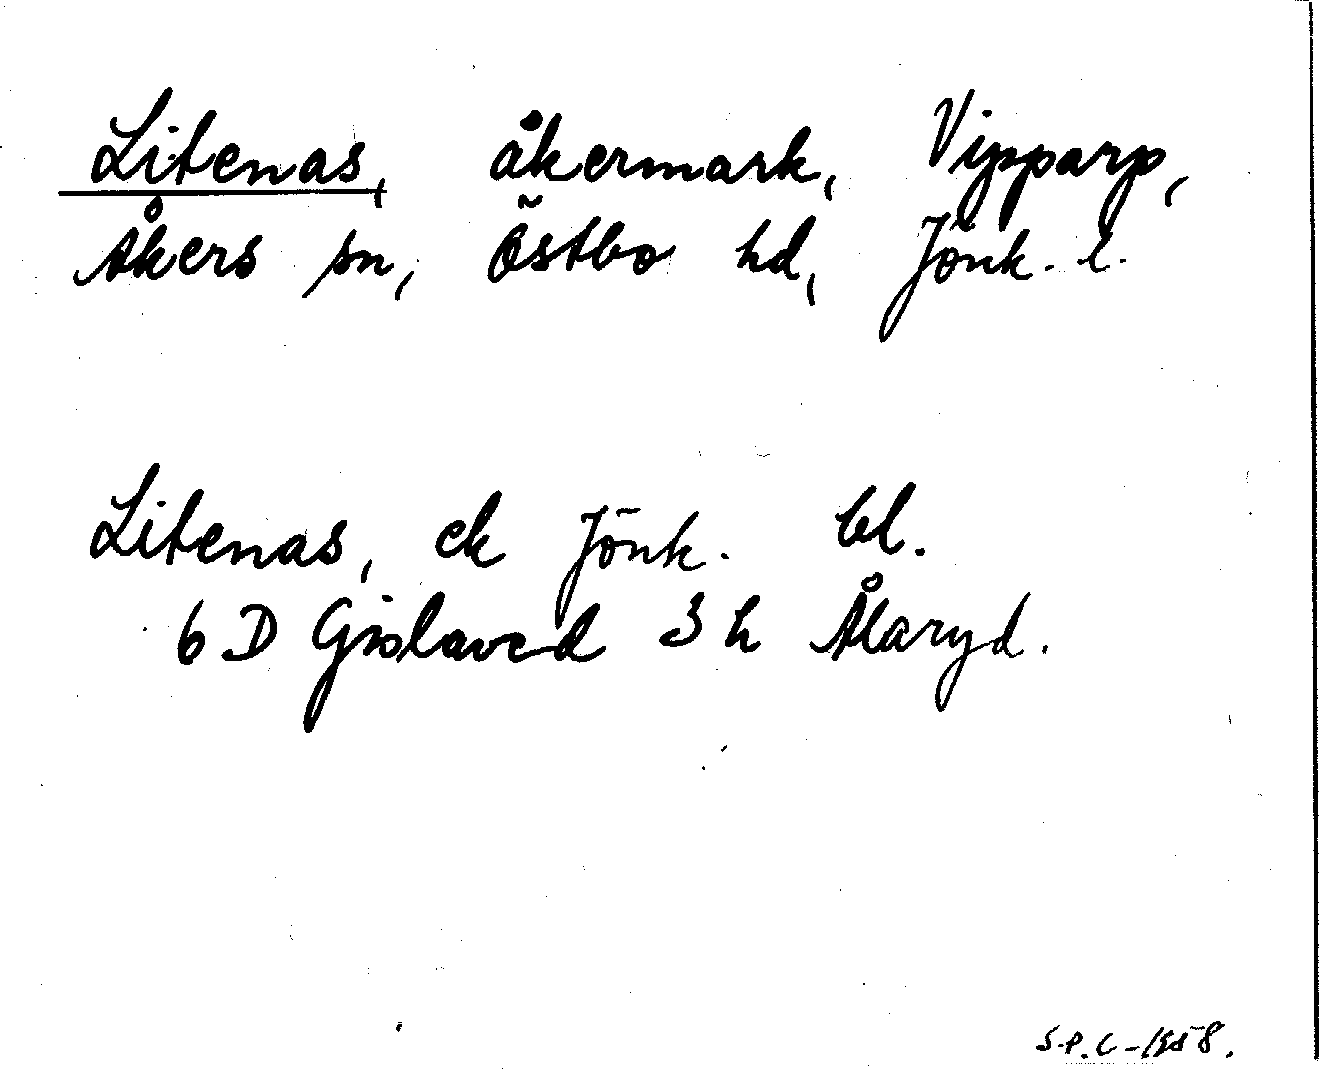 Litenas, åkermark, Vipparp,
Åkers sn, Östbo hd, Jönk. l.
Litenas, ek Jönk. bl.
6 D Gislaved 3 h Ålaryd.
S.P.C-1958.